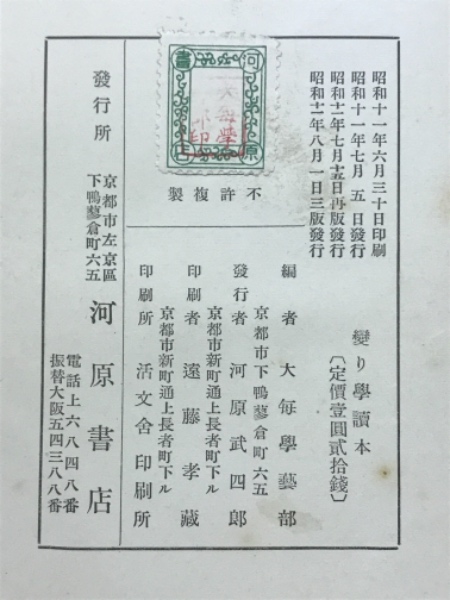 昭和十一年六月三十日印刷
昭和十一年七月五日發行
昭和十一年七月十五日再版發行
昭和十一年八月一日三版發行
變り學讀本
〔定價壹圓貳拾錢〕
河原書店
不許複製
編者 大每學藝部
京都市下鴨蓼倉町六五
發行者 河原武四郎
京都市新町通上長者町下ル
印刷者 遠藤孝藏
京都市新町通上長者町下ル
印刷所 活文舍印刷所
發行所
京都市左京區
下鴨蓼倉町六五
河原書店
電話上六八四八番
振替大阪五四三八八番